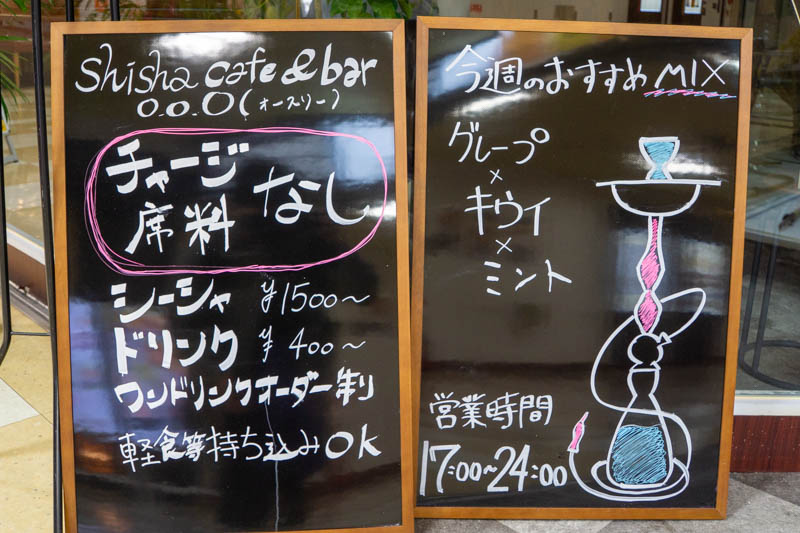 shisha cafe & bar
o.o.O(オースリー)
チャージ
席料 なし
シーシャ ¥1500～
ドリンク ¥400～
ワンドリンクオーダー制
軽食等持ち込みOK
今週のおすすめMIX
グレープ
×
キウイ
×
ミント
営業時間
17:00～24:00